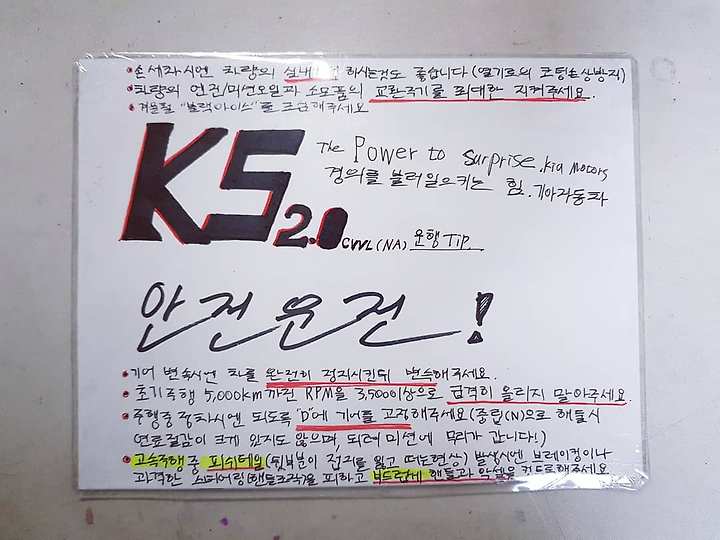 • 손세차시엔 차량의 실내 하시는것도 좋습니다 (열기로의 코팅손상방지)
• 차량의 엔진/미션오일과 소모품의 교환주기를 최대한 지켜주세요.
• 겨울철 "블랙아이스"를 조심해주세요
K5 2.0
The Power to Surprise. Kia Motors
경의를 불러일으키는 힘. 기아자동차
CVVL (NA) 운행 TiP.
안전운전!
• 기어 변속시엔 차를 완전히 정지시킨뒤 변속해주세요.
• 초기주행 5,000km까진 RPM을 3,500이상으로 급격히 올리지 말아주세요.
• 주행중 정차시엔 되도록 "D"에 기어를 고정해주세요 (중립(N)으로 해둘시
연료절감이 크게 있지도 않으며, 되레 미션에 무리가 갑니다!)
• 고속주행 중 피쉬테일(뒷부분이 접지를 잃고 떠는현상) 발생시엔 브레이킹이나
과격한 스티어링(핸들조작)을 피하고 부드럽게 핸들과 악셀을 컨트롤해주세요